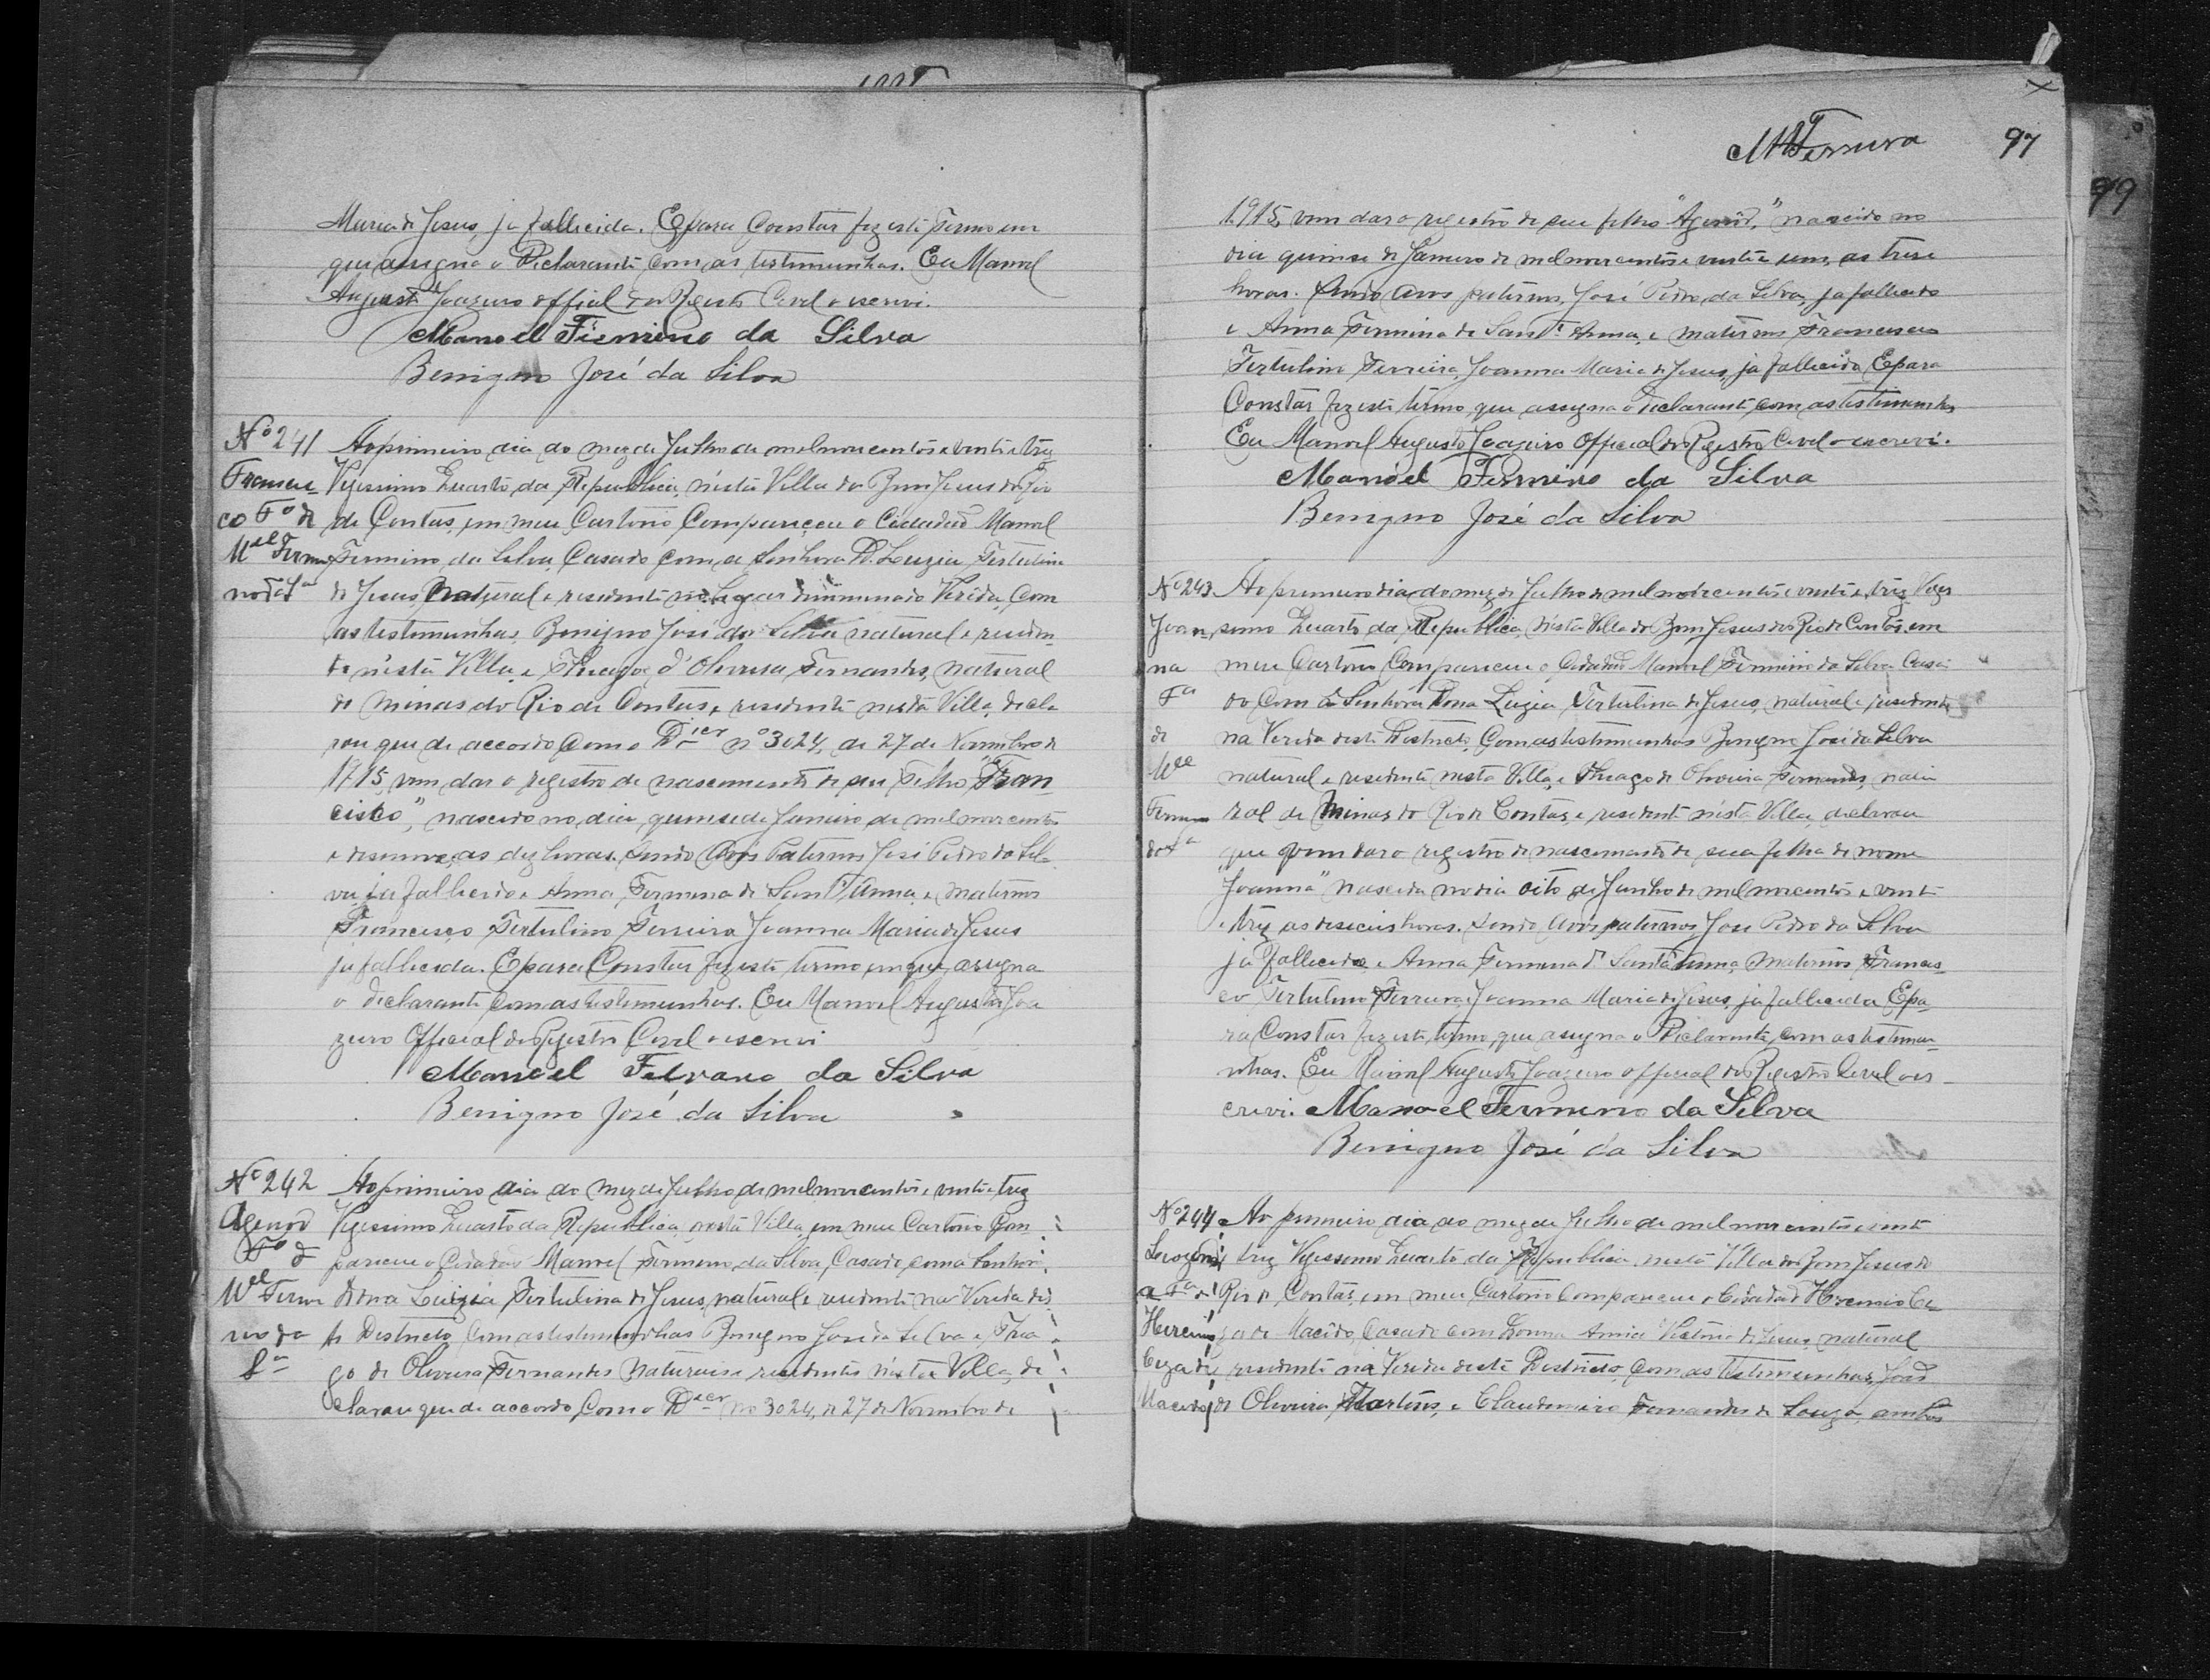 Maria de Jesus, ja fallecida. E para Constar fiz este termo em
que assigna o Declarante com as testimunhas. Eu Manoel
Augusto Joazeiro official do Registro Civel o escrevi.
Manoel Firmino da Silva
Benigno José da Silva
Nº 241
Francis-
co Fº de
Mel Firmi
no da Sª
Ao primeiro dia do mez de Julho de mel novecentos e vinte e trez
Vigessimo Quarto da Republica, nesta Villa do Bom Jesus do Rio
de Contas, em meu Cartorio Compareceu o Cidadão Manoel
Firmino da Silva, Casado com a Senhora D. Luzia Tertulina
de Jesus, Natural e residente no Lugar dinuminado Verêda, Com
as testimunhas, Benigno José da Silva natural e residen-
te nésta Villa, e Thiago d' Oliveira Fernandes, natural
de Minas do Rio de Contas, e residente nesta Villa, decla
rou que de accordo Com o Dier nº 3024, de 27 de Novembro de
1915, vem dar o registro de nascimento de seu Filho "Fran
cisco", nascido no dia quinse de Janeiro de mel novecentos
e desenove, as dez horas, sendo Avós Paternos José Pedro da Sil-
va ja fallecido e Anna Firmina de Sant' Anna, e maternos
Francisco Tertulino Ferreira Joanna Maria de Jesus
ja fallecida. E para Constar fiz este termo em que assigna
o declarante com as testimunhas. Eu Manoel Augusto Joa
zeiro Official do Registro Civel o escrevi
Manoel Firmino da Silva
Benigno José da Silva
Nº 242
Agenôr
Fº de
Mel Firmi
no da
Sª
Ao primeiro dia do mez de Julho de mel novecentos e vinte e trez
Vigessimo Quarto da Republica, nesta Villa, em meu Cartorio Com-
pareceu o Cidadão Manoel Firmino da Silva, Casado com a Senhora
Dona Luizia Tertulina de Jesus, natural e residente na Vereda des-
te Destricto, Com as testimunhas Benigno José da Silva e Thia
go de Oliveira Fernandes Naturais e residentes nésta Villa, de
clarou que de accordo, Com o Dier nº 3024, de 27 de Novembro de
MAFerreira
97
99
1915, vem dar o registro de seu filho "Agenôr," nascido no
dia quinse de Janeiro de mel novecentos e vinte e um, as trese
horas. Sendo Avos paternos, José Pedro da Silva, ja fallecido
e Anna Firmina de Sant' Anna, e maternos Francisco
Tertulino Ferreira, Joanna Maria de Jesus, ja fallecida, E para
Constar fiz este termo, que assigna o declarante, com as testimunhas
Eu Manoel Augusto Joazeiro Official do Registro Civel o escrevi.
Manoel Firmino da Silva
Benigno José da Silva
Nº 243
Joan
na
Fª
de
Mel
Firmino
da Sª
Ao primeiro dia do mez de Julho de mel novecentos e vinte e trez Viges
simo Quarto da Republica, nésta Villa do Bom Jesus do Rio de Contas, em
meu Cartorio Compareceu o Cidadão Manoel Firmino da Silva Casa-
do Com a Senhora Dona Luzia Tertulina de Jesus, natural e residente
na Vereda deste Destricto, Com as testimunhas Benigno José da Silva
natural e residente nesta Villa, e Thiago de Oliveira Fernandes, natu
ral de Minas do Rio de Contas, e residente nésta Villa, declarou
que vem dar o registro de nascimento de sua filha de nome
"Joanna" Nascida no dia oito de Junho de mel novecentos e vinte
e trez as deseseis horas. Sendo Avós paternos, José Pedro da Silva
ja fallecido, e Anna Firmina d' Santa Anna, Maternos, Francis-
co Tertulino Ferreira Joanna Maria de Jesus, ja fallecida E pa-
ra Constar fiz este termo, que assigna o Declarante, com as testimu-
nhas. Eu Manoel Augusto Joazeiro official do Registro Civel o es-
crevi. Manoel Firmino da Silva
Benigno José da Silva
Nº 244
a Fª de
Hercino
Ceza de
Macedo
Ao primeiro dia do mez de Julho de mel novecentos e vinte
e trez Vigessimo Quarto da Republica nesta Villa do Bom Jesus do
Rio de Contas, em meu Cartorio Compareceu o Cidadão Hercino Ce
za de Macêdo, Casado com Donna Victoria de Jesus, natural
e residente na Vereda deste Destricto, Com as testimunhas, João
de Oliveira Martins, e Claudemiro Fernandes de Souza, ambos